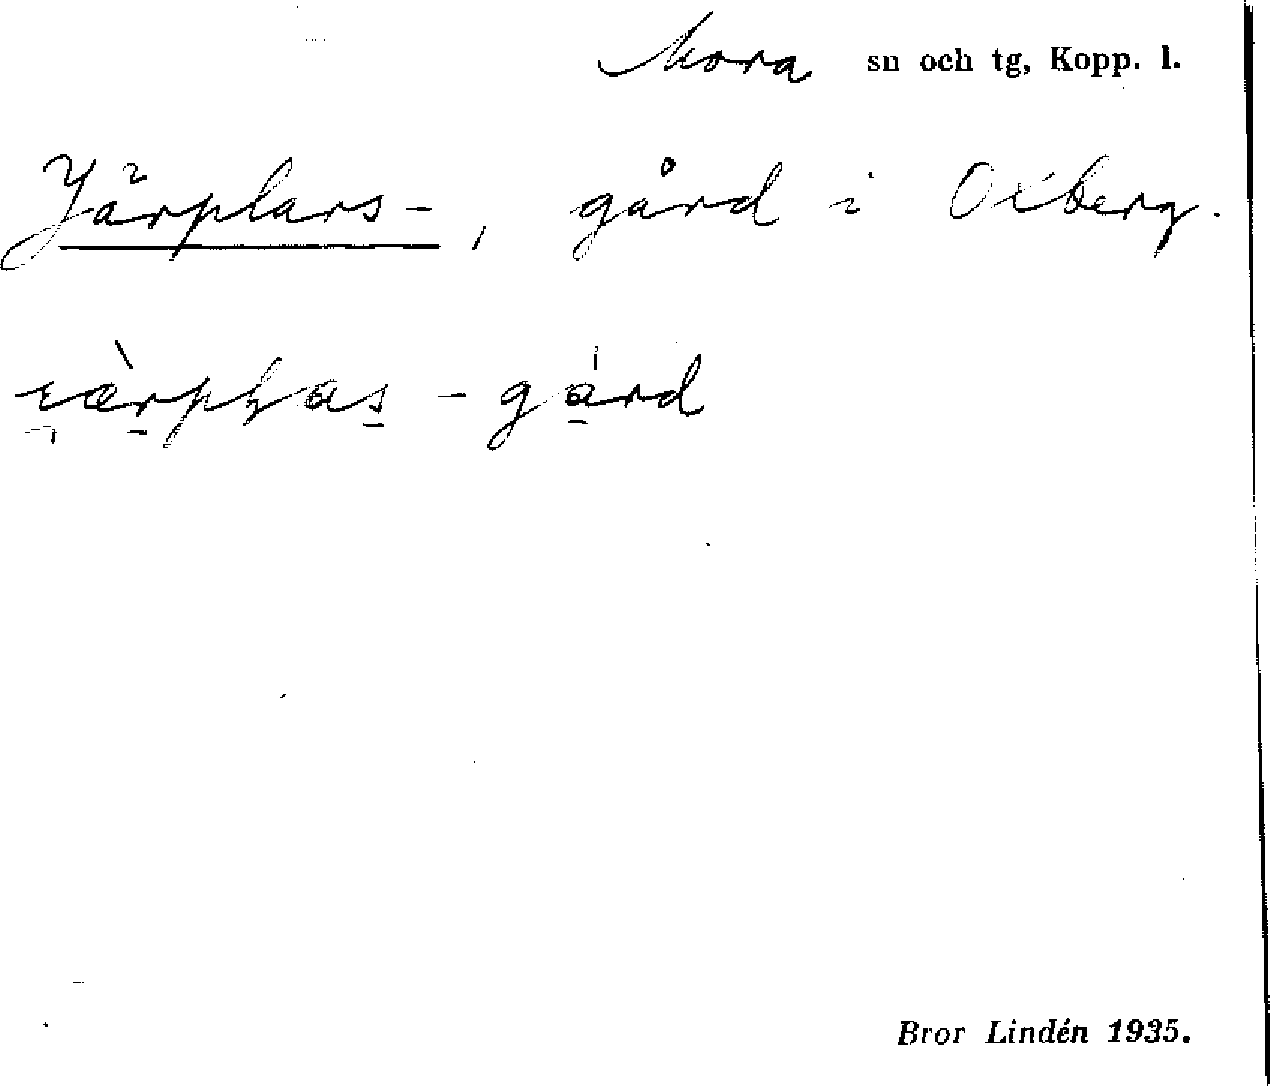 Mora sn och tg, Kopp. l.
Järplars-, gård i Oxberg.
ıæ̀rpɫas - gård
Bror Lindén 1935.